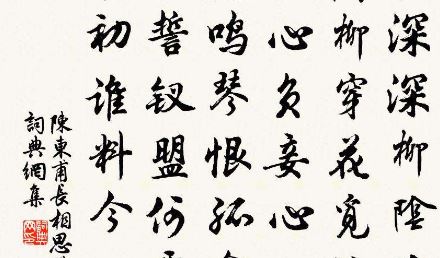 深深柳陰
柳穿花覓
心负妾心
鸣琴恨孤
誓钗盟何
初誰料今
陳東甫長相思
詞典網集